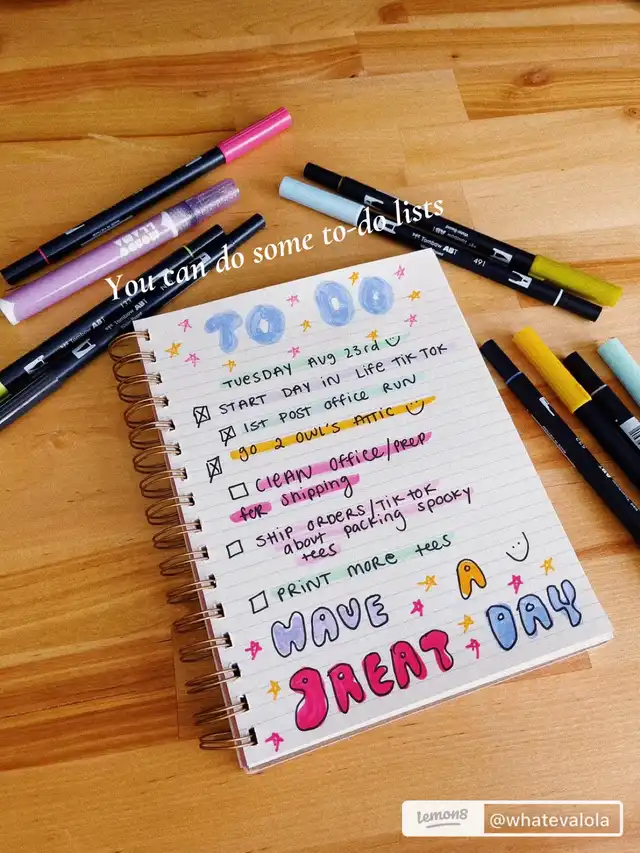 You can do some to-do lists
TO DO
TUESDAY Aug 23rd
START DAY IN LIFE TIKTOK
1ST POST OFFICE RUN
go 2 OWL'S ATTIC
CLEAN OFFICE/PREP
for shipping
SHIP ORDERS/TIKTOK
about packing spooky
tees
PRINT MORE tees
HAVE A
GREAT DAY
Tombow ABT
Tombow ABT
491
Tombow ABT
Tombow ABT
lemon8 @whatevalola